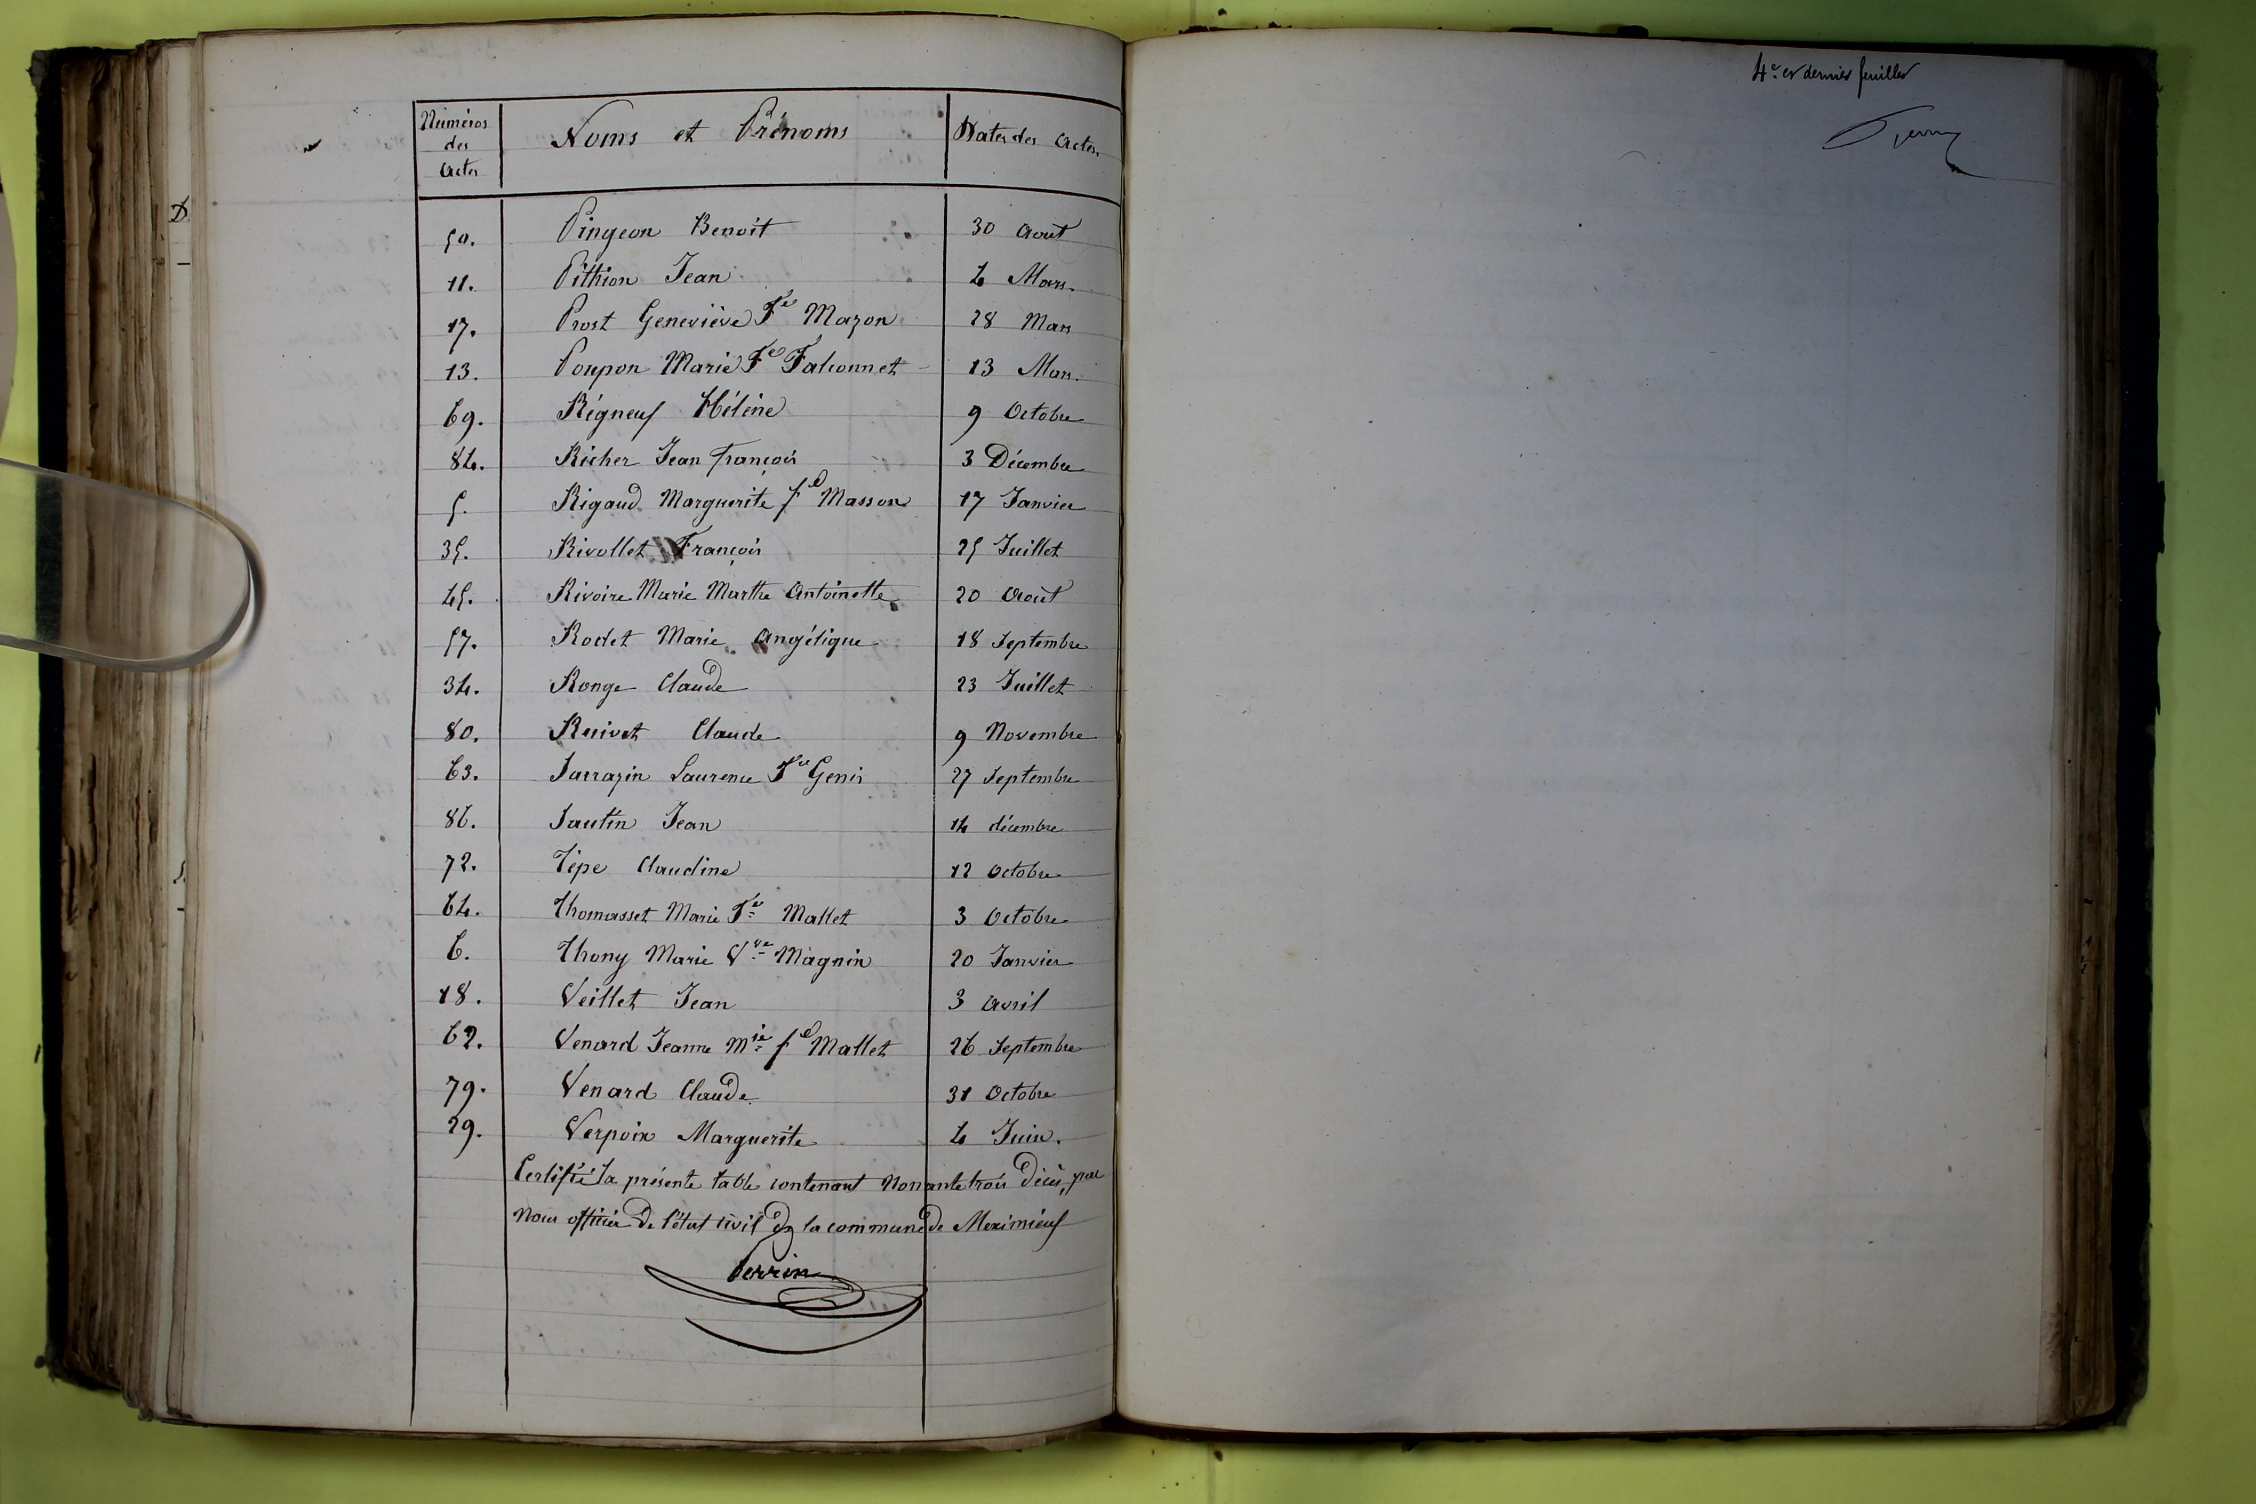 Numéros des Actes Noms et Prénoms Dates des Actes
50. Pingeon Benoît 30 Août
11. Pithion Jean 4 Mars.
17. Prost Geneviève Fe Mazon 28 Mars
13. Poupon Marie Fe Falconnet 13 Mars.
69. Régneuf Hélène 9 Octobre
84. Richer Jean françois 3 Décembre
5. Rigaud Marguerite fe Masson 17 Janvier
35. Rivollet François 25 Juillet
45. Rivoire Marie Marthe Antoinette 20 Août
57. Rodet Marie Angélique 18 Septembre
34. Ronge Claude 23 Juillet
80. Ruivet Claude 9 Novembre
63. Sarrazin Laurence Fe Genis 27 Septembre
86. Sautin Jean 14 décembre
72. Tépe Claudine 12 Octobre
64. Thomasset Marie Fe Mallet 3 Octobre
6. Thony Marie Vve Magnin 20 Janvier
18. Veillet Jean 3 Avril
62. Venard Jeanne Mie fe Mallet 26 Septembre
79. Venard Claude 31 Octobre
29. Verpoix Marguerite 4 Juin.
Certifié la présente table contenant Nonante trois Décès, par
Nous officier De l'état civil de la commune de Meximieux
Perrin
4e et dernier feuillet